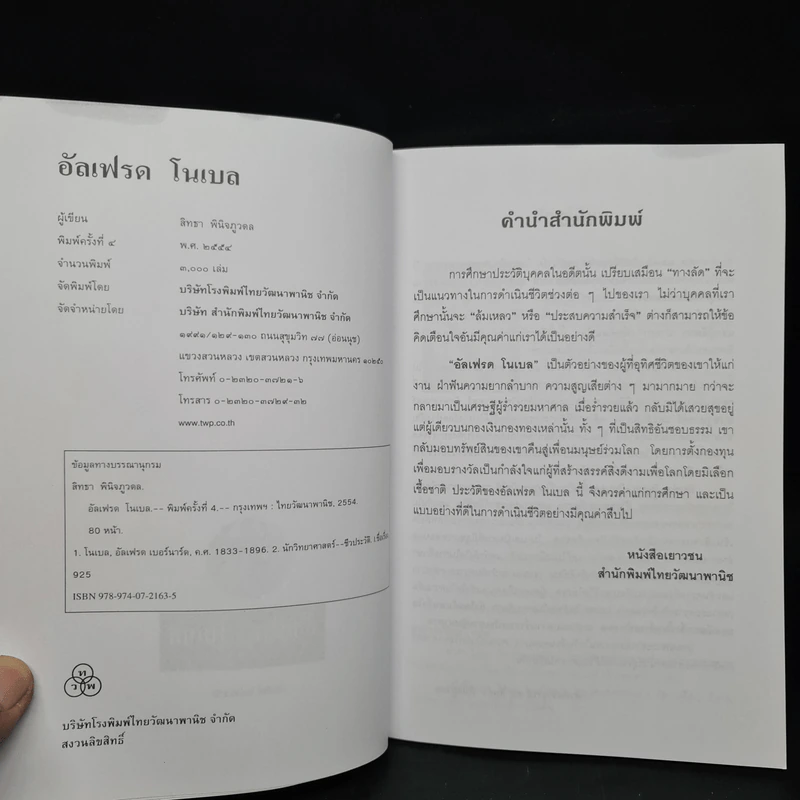 อัลเฟรด โนเบล
ผู้เขียน สิทธา พินิจภูวดล
พิมพ์ครั้งที่ ๔ พ.ศ. ๒๕๕๔
จำนวนพิมพ์ ๓,๐๐๐ เล่ม
จัดพิมพ์โดย บริษัทโรงพิมพ์ไทยวัฒนาพานิช จำกัด
จัดจำหน่ายโดย บริษัท สำนักพิมพ์ไทยวัฒนาพานิช จำกัด
๑๙๙๑/๑๒๙-๑๓๐ ถนนสุขุมวิท ๗๗ (อ่อนนุช)
แขวงสวนหลวง เขตสวนหลวง กรุงเทพมหานคร ๑๐๒๕๐
โทรศัพท์ ๐-๒๓๒๐-๓๗๒๑-๖
โทรสาร ๐-๒๓๒๐-๓๗๒๙-๓๒
www.twp.co.th
ข้อมูลทางบรรณานุกรม
สิทธา พินิจภูวดล.
อัลเฟรด โนเบล.-- พิมพ์ครั้งที่ 4.-- กรุงเทพฯ : ไทยวัฒนาพานิช, 2554.
80 หน้า.
1. โนเบล, อัลเฟรด เบอร์นาร์ด, ค.ศ. 1833-1896. 2. นักวิทยาศาสตร์--ชีวประวัติ.
925
ISBN 978-974-07-2163-5
ท
ว พ
บริษัทโรงพิมพ์ไทยวัฒนาพานิช จำกัด
สงวนลิขสิทธิ์
คำนำสำนักพิมพ์
การศึกษาประวัติบุคคลในอดีตนั้น เปรียบเสมือน “ทางลัด” ที่จะ
เป็นแนวทางในการดำเนินชีวิตช่วงต่อ ๆ ไปของเรา ไม่ว่าบุคคลที่เรา
ศึกษานั้นจะ “ล้มเหลว” หรือ “ประสบความสำเร็จ” ต่างก็สามารถให้ข้อ
คิดเตือนใจอันมีคุณค่าแก่เราได้เป็นอย่างดี
“อัลเฟรด โนเบล” เป็นตัวอย่างของผู้ที่อุทิศชีวิตของเขาให้แก่
งาน ฝ่าฟันความยากลำบาก ความสูญเสียต่าง ๆ มามากมาย กว่าจะ
กลายมาเป็นเศรษฐีผู้ร่ำรวยมหาศาล เมื่อร่ำรวยแล้ว กลับมิได้เสวยสุขอยู่
แต่ผู้เดียวบนกองเงินกองทองเหล่านั้น ทั้ง ๆ ที่เป็นสิทธิอันชอบธรรม เขา
กลับมอบทรัพย์สินของเขาคืนสู่เพื่อนมนุษย์ร่วมโลก โดยการตั้งกองทุน
เพื่อมอบรางวัลเป็นกำลังใจแก่ผู้ที่สร้างสรรค์สิ่งดีงามเพื่อโลกโดยมิเลือก
เชื้อชาติ ประวัติของอัลเฟรด โนเบล นี้ จึงควรค่าแก่การศึกษา และเป็น
แบบอย่างที่ดีในการดำเนินชีวิตอย่างมีคุณค่าสืบไป
หนังสือเยาวชน
สำนักพิมพ์ไทยวัฒนาพานิช